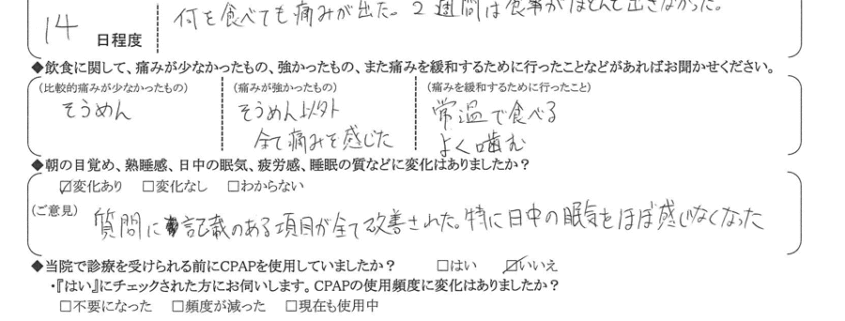 何を食べても痛みが出た。2週間は食事がほとんど出きなかった。
14 日程度
◆飲食に関して、痛みが少なかったもの、強かったもの、また痛みを緩和するために行ったことなどがあればお聞かせください。
(比較的痛みが少なかったもの) (痛みが強かったもの) (痛みを緩和するために行ったこと)
そうめん そうめん以外 常温で食べる
全て痛みを感じた よく噛む
◆朝の目覚め、熟睡感、日中の眠気、疲労感、睡眠の質などに変化はありましたか？
☑変化あり □変化なし □わからない
(ご意見) 質問に記載のある項目が全て改善された。特に日中の眠気をほぼ感じなくなった
◆当院で診療を受けられる前にCPAPを使用していましたか？ □はい ☑いいえ
・『はい』にチェックされた方にお伺いします。CPAPの使用頻度に変化はありましたか？
□不要になった □頻度が減った □現在も使用中